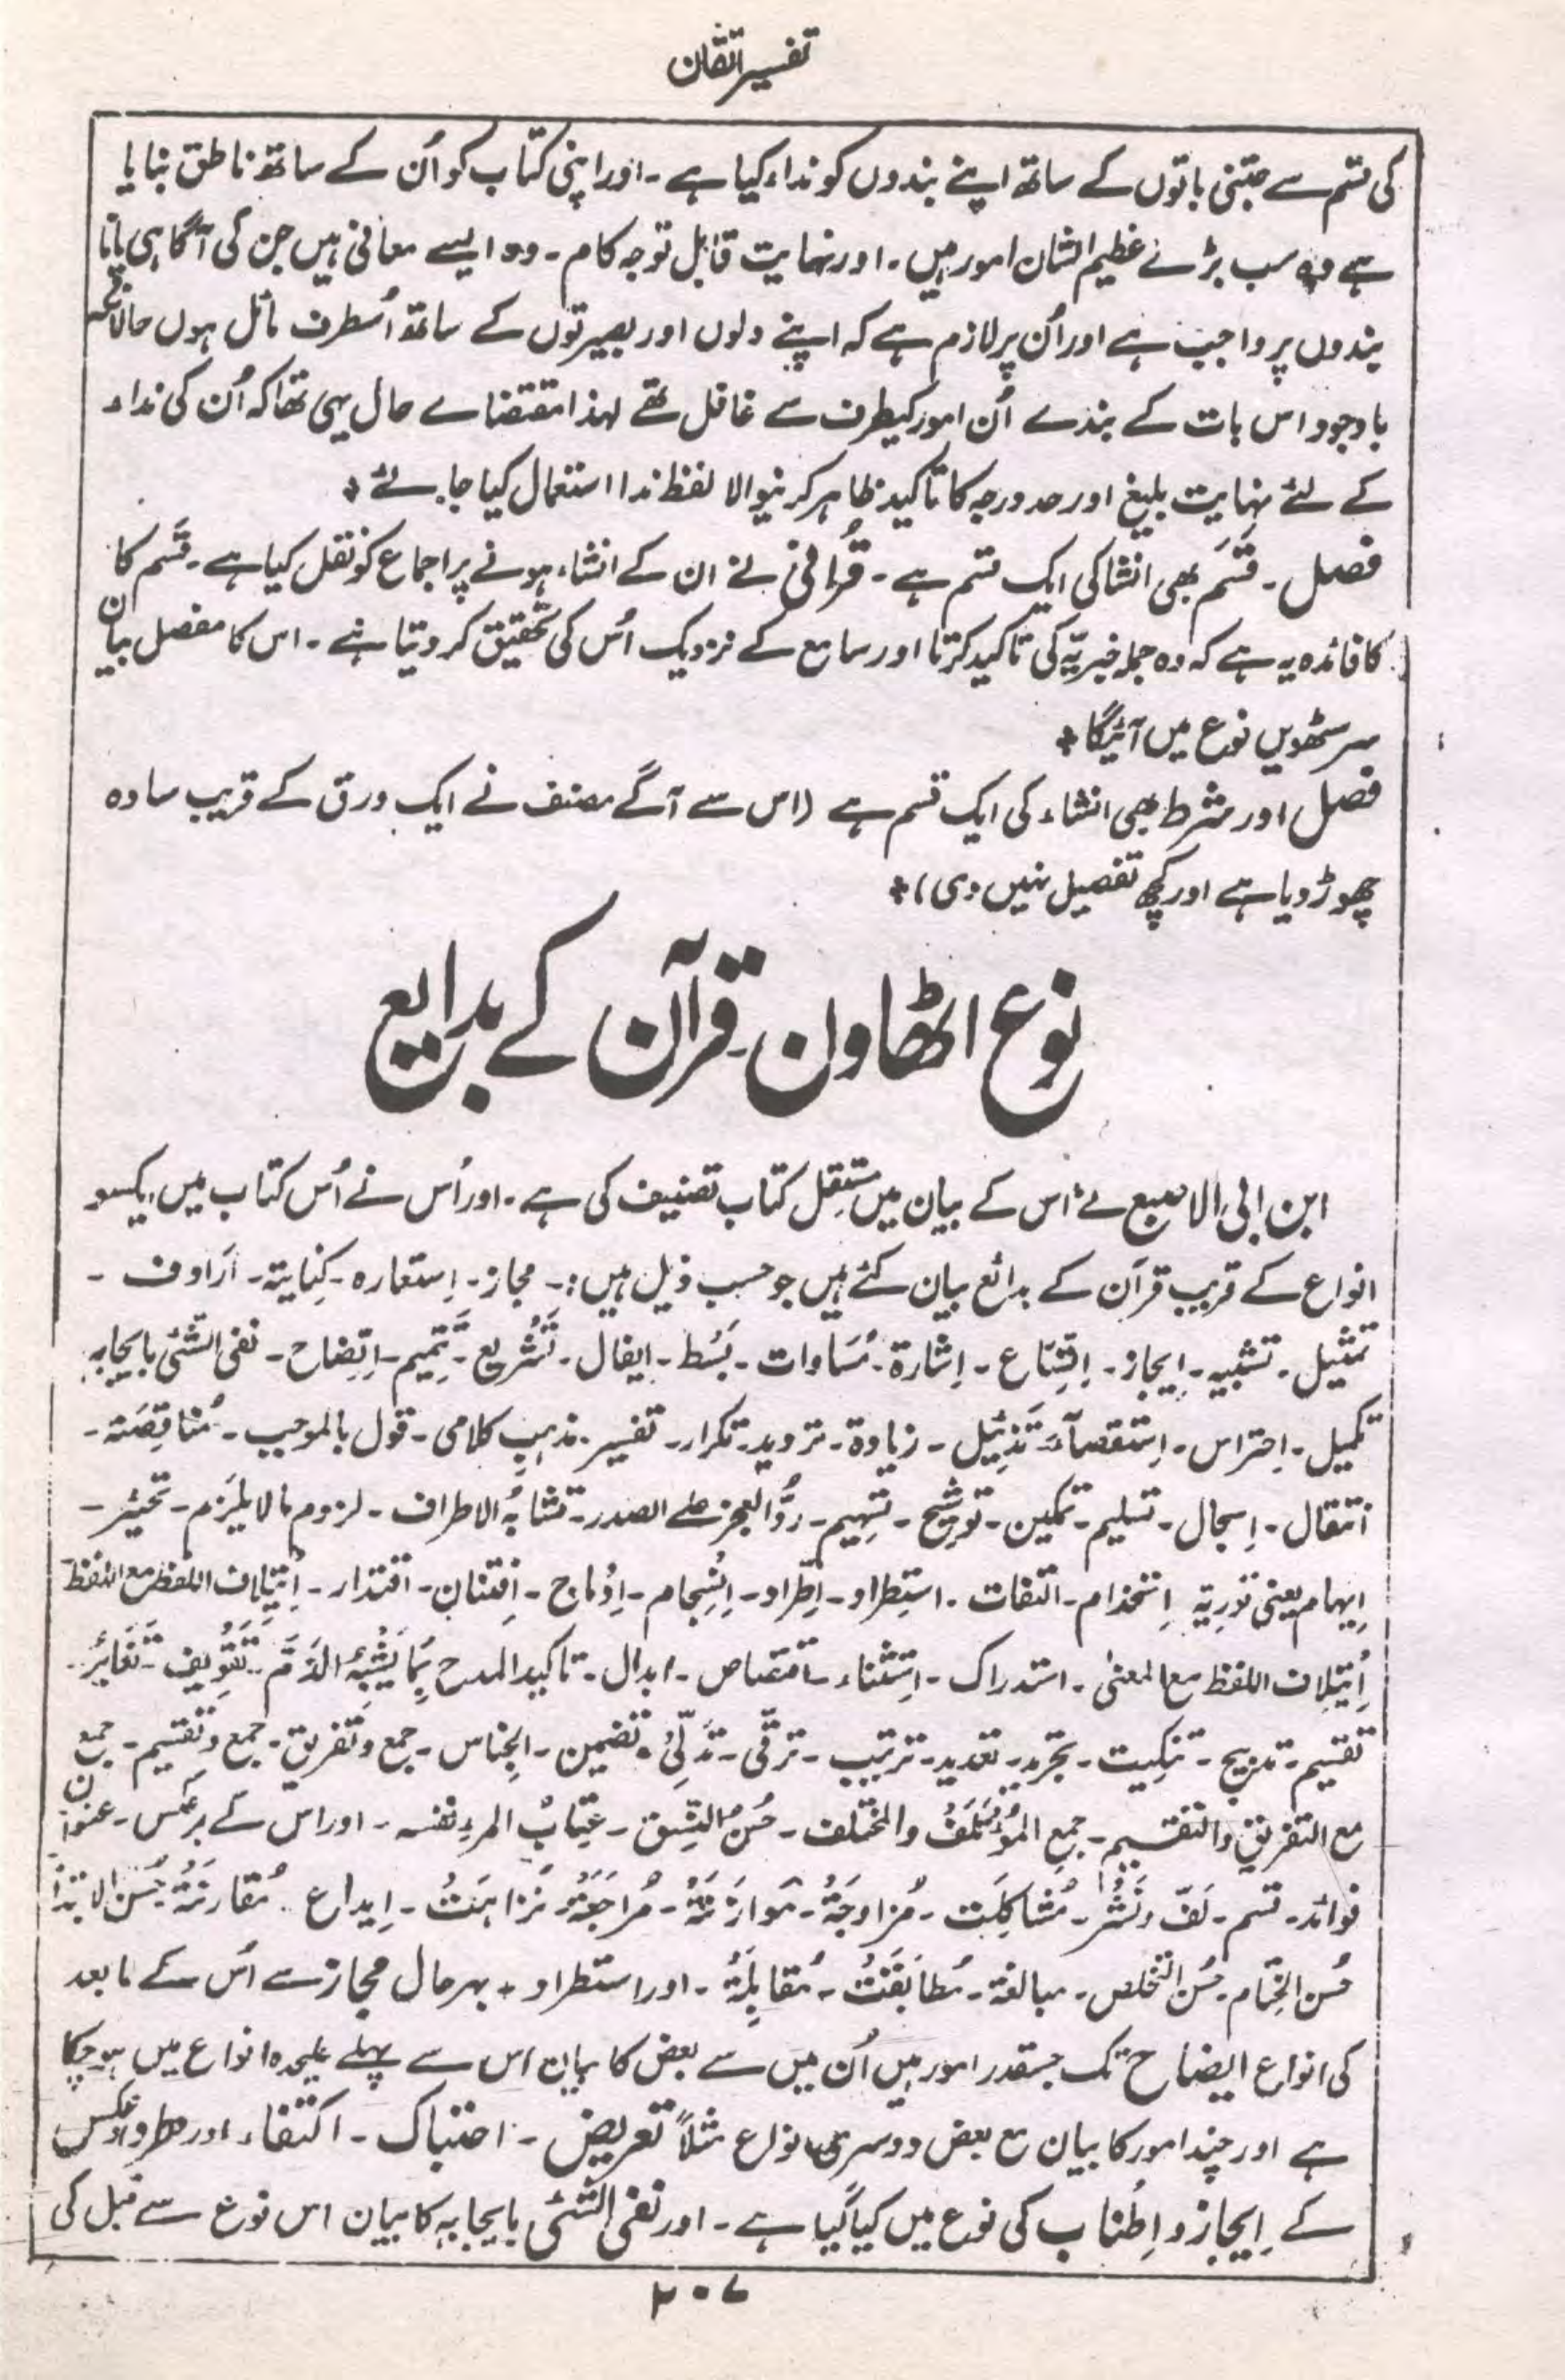 تفسیر اتقان
کی قسم سے جتنی باتوں کے ساتھ اپنے بندوں کو نداء کیا ہے ۔ اور اپنی کتاب کو اُن کے ساتھ ناطق بنایا
ہے وہ سب بڑے عظیم الشان امور ہیں ۔ اور نہایت قابل توجہ کام ۔ وہ ایسے معانی ہیں جن کی آگاہی پانا
بندوں پر واجب ہے اور اُن پر لازم ہے کہ اپنے دلوں اور بصیرتوں کے ساتھ اُسطرف مائل ہوں حالانکہ
باوجود اس بات کے بندے اُن امور کیطرف سے غافل تھے لہذا مقتضاے حال یہی تھا کہ اُن کی نداء
کے لئے نہایت بلیغ اور حد ورجہ کا تاکید ظاہر کرنیوالا لفظ ندا استعمال کیا جائے ٭
فصل ۔ قَسَم بھی انشا کی ایک قسم ہے ۔ قُرافی نے ان کے انشاء ہونے پر اجماع کو نقل کیا ہے ۔ قَسَم کا
کا فائدہ یہ ہے کہ وہ جملہ خبریّہ کی تاکید کرتا اور سامع کے نزدیک اُس کی تحقیق کر دیتا ہے ۔ اس کا مفصل بیان
سرسٹھویں نوع میں آئیگا ٭
فصل اور شرط بھی انشاء کی ایک قسم ہے (اس سے آگے مصنف نے ایک ورق کے قریب سادہ
چھوڑ دیا ہے اور کچھ تفصیل نہیں دی) ٭
نوع اٹھاون ۔ قرآن کے بدایع
ابن ابی الاصبع نے اس کے بیان میں مستقل کتاب تصنیف کی ہے ۔ اور اُس نے اُس کتاب میں ایکسو
انواع کے قریب قرآن کے بدائع بیان کئے ہیں جو حسب ذیل ہیں :۔ مجاز ۔ اِستعارہ ۔ کِنایتہ ۔ اَرادف ۔
تمثیل ۔ تشبیہ ۔ اِیجاز ۔ اِقتِناع ۔ اِشارۃ ۔ مُسَاوات ۔ بَسْط ۔ ایفال ۔ تَشْریع ۔ تَتمِیم ۔ اِتِضاح ۔ نفی الشئی بایجابہ
تکمیل ۔ اِحتراس ۔ اِستقصآء ۔ تَذئِیل ۔ زیادۃ ۔ تردید ۔ تکرار ۔ تفسیر ۔ مذہبِ کلامی ۔ قول بالموجب ۔ مُناقِضَتہ ۔
اَنتقال ۔ اِسجال ۔ تسلیم ۔ تمکین ۔ تَوشیح ۔ تسِہیم ۔ ردُّ العجز علے الصدر ۔ تشابُہ الاطراف ۔ لزوم مالا یلیزم ۔ تخیئر ۔
اِیہام یعنی تَورِیۃ اِستخذام ۔ التفات ۔ استِطراد ۔ اِطّراد ۔ اِنْسِجام ۔ اِدْماج ۔ اِفتِنان ۔ اقتدار ۔ اِئیتلاف اللفظ مع اللفظ
اِئیتِلاف اللفظ مع المعنیٰ ۔ استدراک ۔ اِستِثناء ۔ اقتصاص ۔ ابدال ۔ تاکید المدح بِمَا یَشبِہُ الذَم ۔ تَفَوِیف ۔ تَغَایُر ۔
تقسیم ۔ تدبیج ۔ تنکِیت ۔ تجرید ۔ تعدید ۔ ترتیب ۔ ترقّی ۔ تَدلّیْ ۔ تضمین ۔ اَلجِناس ۔ جمع وتفریق ۔ جمع وتقسیم ۔ جمع
مع التفریق والتقسیم ۔ جمع المُؤتَلَف والمختلف ۔ حُسنُ النَّسَق ۔ عِتابُ المرءِ نفسہ ۔ اور اس کے برعکس ۔ عنوان
فوائد ۔ قسم ۔ لَفّ ونَشْر ۔ مُشاکِلَت ۔ مُزاوجَۃُ ۔ مَوازَنَۃُ ۔ مُراجَعَۃُ ۔ نَزاہَتُ ۔ اِبداع ۔ مُقارنَۃُ حُسن الابتدأ
حُسن الخِتام ۔ حُسن التخلص ۔ مبالغۃ ۔ مُطابَقَتُ ۔ مُقابِلَۃُ ۔ اور استطراد ۔ بہرحال مجاز سے اُس کے مابعد
کی انواع ایضاح تک جسقدر امور ہیں اُن میں سے بعض کا بیان اس سے پہلے علیحدہ انواع میں ہوچکا
ہے اور چند امور کا بیان مع بعض دوسری انواع مثلاً تعریض ۔ احتباک ۔ اکتفاء اور طرد وعکس
کے اِیجاز و اِطناب کی نوع میں کیا گیا ہے ۔ اور نفی الشئی بایجابہ کا بیان اس نوع سے قبل کی
۲۰۷